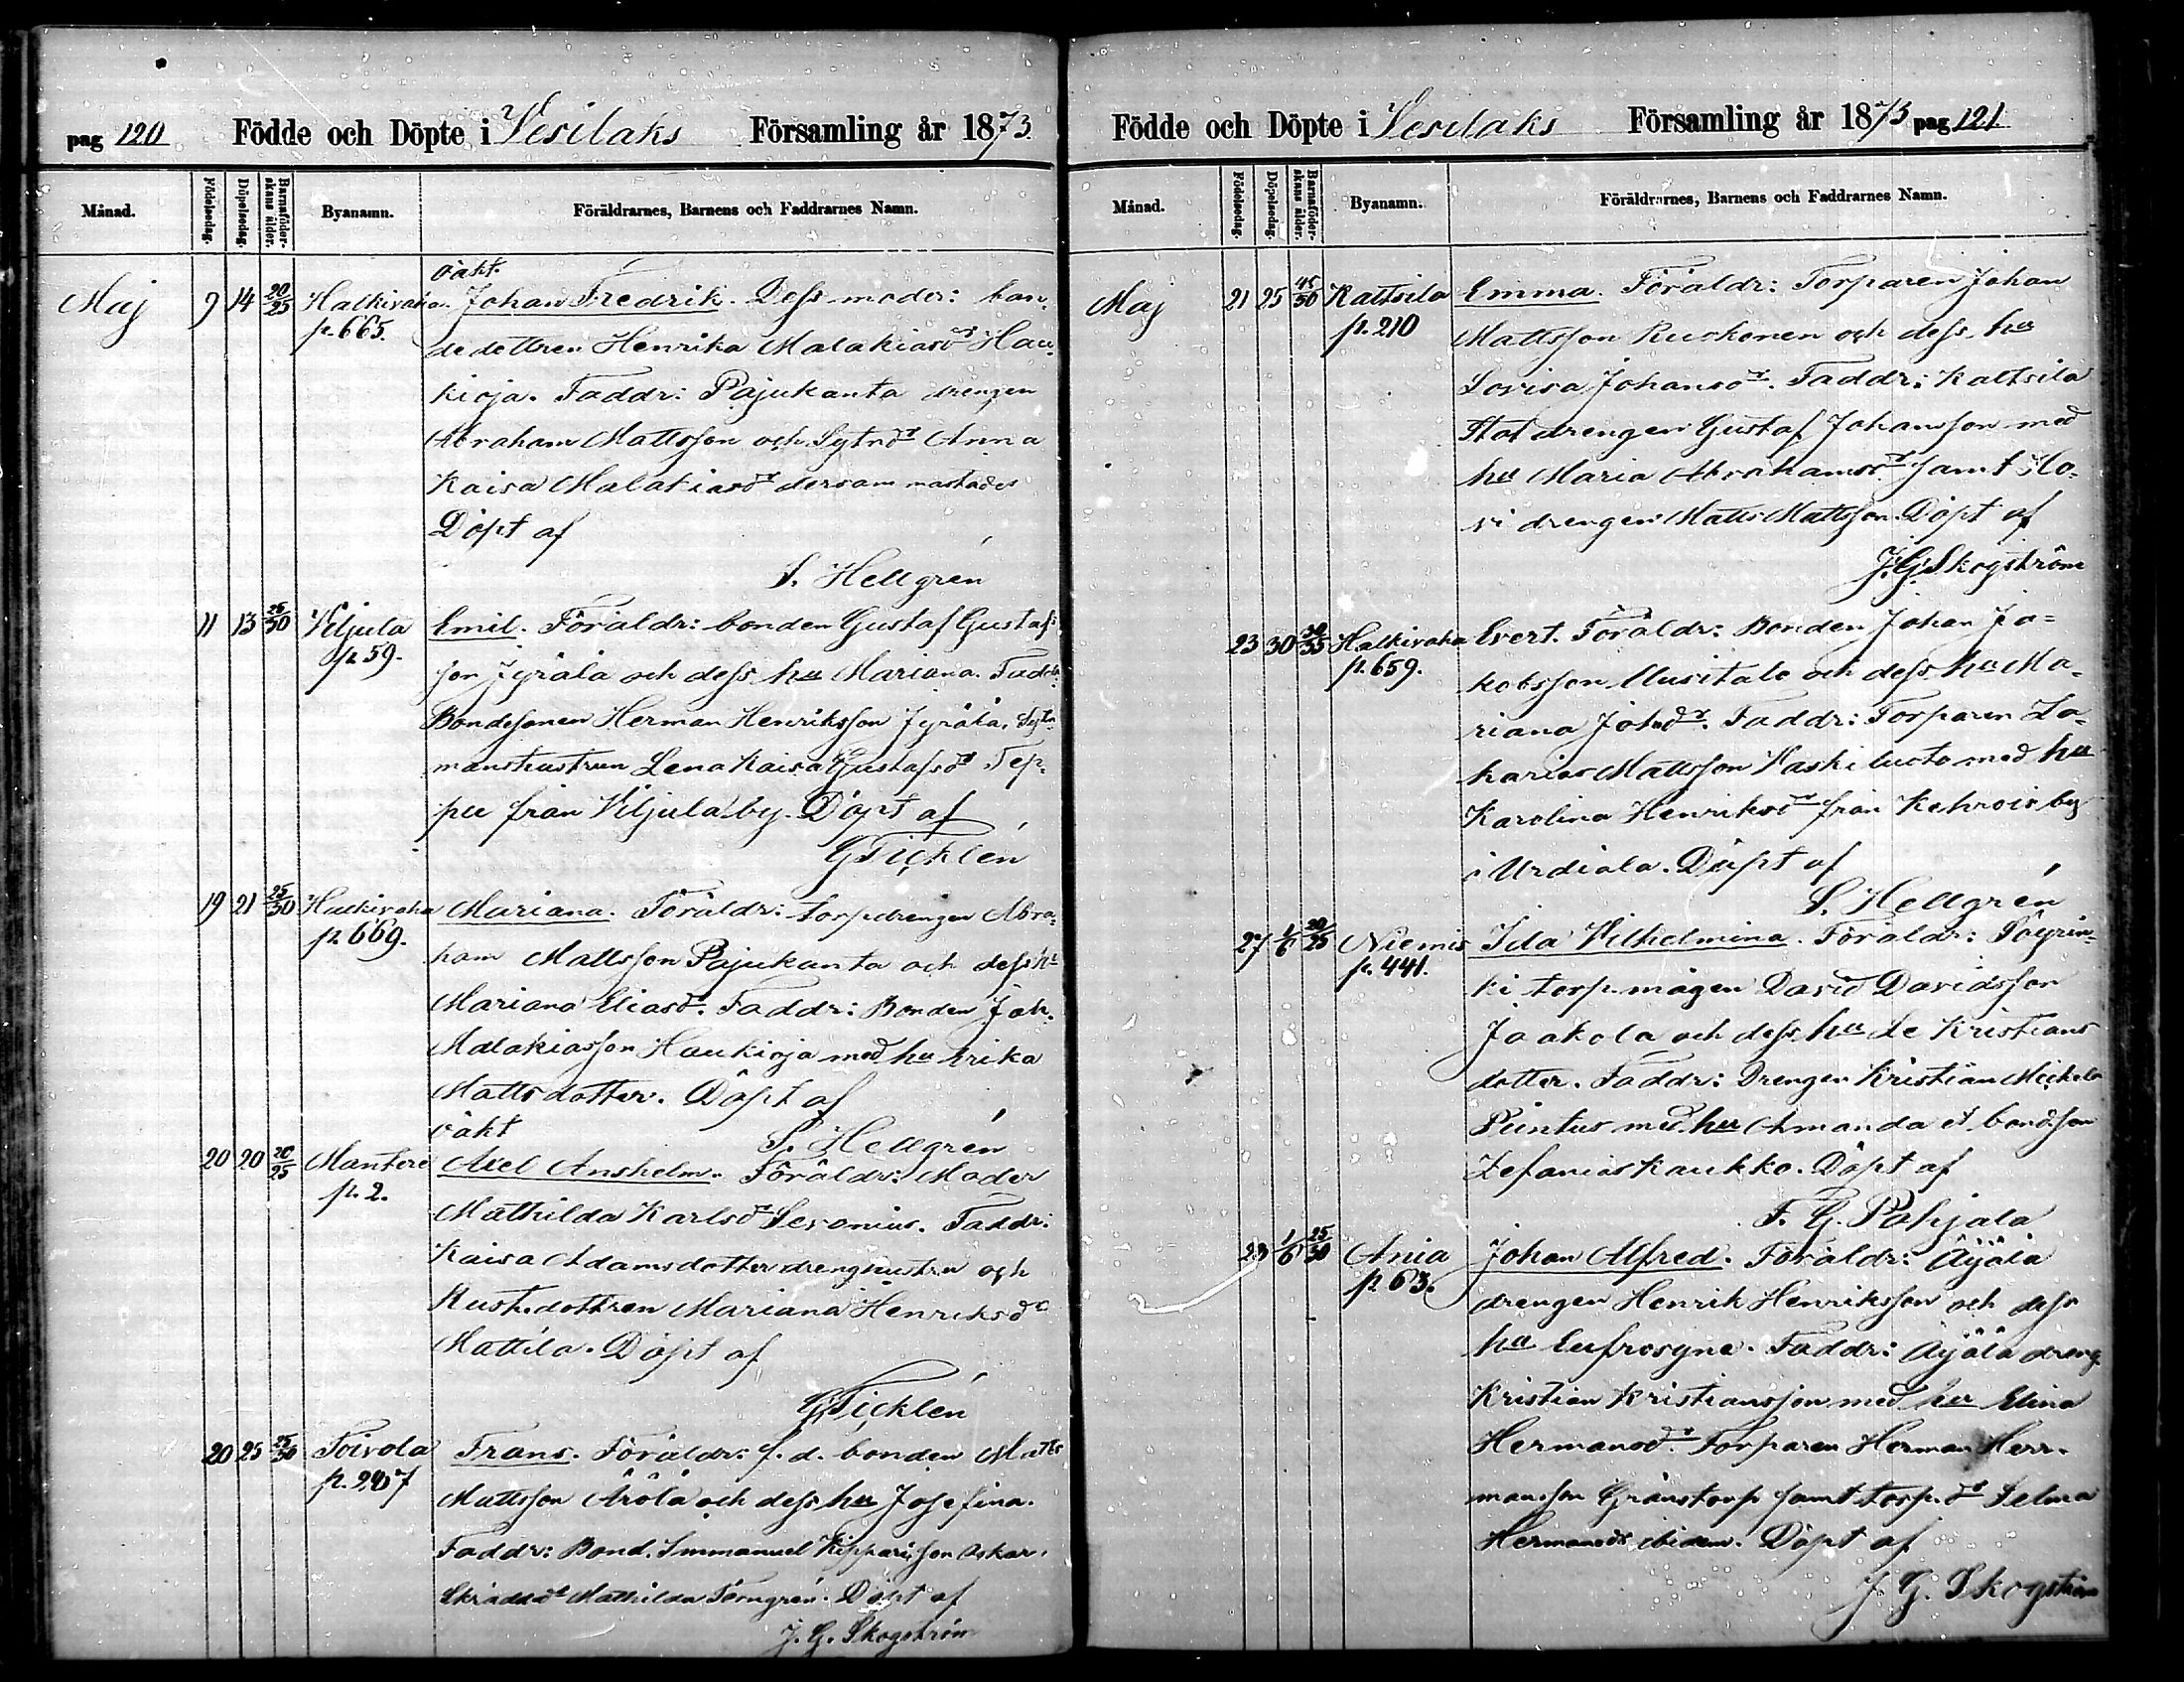 pag 120 Födde och Döpte i Vesilaks Församling år 1873.
Månad. Födelsedag. Döpelsedag. Barnaföder-skans ålder. Byanamn. Föräldrarnes, Barnens och Faddrarnes Namn.
oäkt.
Maj 9 14 20/25 Halkivaha. Johan Fredrik. Dess moder: bon-
p. 665. dedottren Henrika Malakiasdr Hau-
kioja. Faddr: Pajukanta drengen
Abraham Mattsson och Sytndr Anna
Kaisa Malakiasdr dersam mastades
Döpt af
S. Hellgrén
11 13 25/30 Viljula Emil. Föräldr: bonden Gustaf Gustafs-
p. 59. son Jyrälä och dess hu Mariana. Faddr:
Bondesonen Herman Henriksson Jyrälä, Sytn
manshustrun Lena Kaisa Gustafsdr Tep-
pu från Viljula by. Döpt af
G Ticklén
19 21 25/30 Halkivaha Mariana. Föräldr: torpdrengen Abra-
p. 669. ham Mattsson Pajukanta och dess hu
Mariana Eliasdr. Faddr: Bonden Joh.
Malakiasson Haukioja med hu Erika
Mattsdotter. Döpt af
oäkt S. Hellgrén
20 20 20/25 Mantere Axel Anshelm. Föräldr: Moder
p. 2. Mathilda Karlsdr Leronius. Faddr:
Kaisa Adamsdotter drenghustru och
Rusth.dottren Mariana Henriksdr
Mattila. Döpt af
G Ticklén
20 25 25/30 Toivola Frans. Föräldr: f. d. bonden Matts
p. 247 Mattsson Ärölä och dess hu Josefina.
Faddr: Bond. Immanuel Kipparisson Oskar.
Skräddr Mathilda Törngrén. Döpt af
J. G. Skogström
Födde och Döpte i Vesilaks Församling år 1873 pag 121
Månad. Födelsedag. Döpelsedag. Barnaföder-skans ålder. Byanamn. Föräldrarnes, Barnens och Faddrarnes Namn.
Maj 21 25 45/50 Kaltsila Emma. Föräldr: Torparen Johan
p. 210 Mattsson Ruskonen och dess hu
Lovisa Johansdr. Faddr: Kaltsila
Stat drengen Gustaf Johansson med
hu Maria Abrahamsdr samt Ilo-
vi drengen Matts Mattsson. Döpt af
J. G. Skogström
23 30 30/35 Halkivaha Evert. Föräldr: Bonden Johan Ja-
p. 659. kobsson Uusitalo och dess hu Ma-
riana Johsdr. Faddr: Torparen Za-
karias Mattsson Vaskiluoto med hu
Karolina Henriksdr från Kehrois by
i Urdiala. Döpt af
S. Hellgrén
27 1/6 20/25 Niemis Ida Vilhelmina. Föräldr: Päyrin-
p. 441. ki torp.mågen David Davidsson
Jaakola och dess hu Le Kristians
dotter. Faddr: Drengen Kristian Mickels
Puntus med hu Amanda et bondson
Zefanias Kaukko. Döpt af
F. G. Pohjala
29 1/6 25/30 Ania Johan Alfred. Föräldr: Äijälä
p. 63. drengen Henrik Henriksson och dess
hu Eufrosyne. Faddr: Äijälä dreng
Kristian Kristiansson med hu Elina
Hermansdr. Torparen Herman Her-
mansson Gränstorp samt torp.dr Selma
Hermansdr ibidem. Döpt af
J. G. Skogström